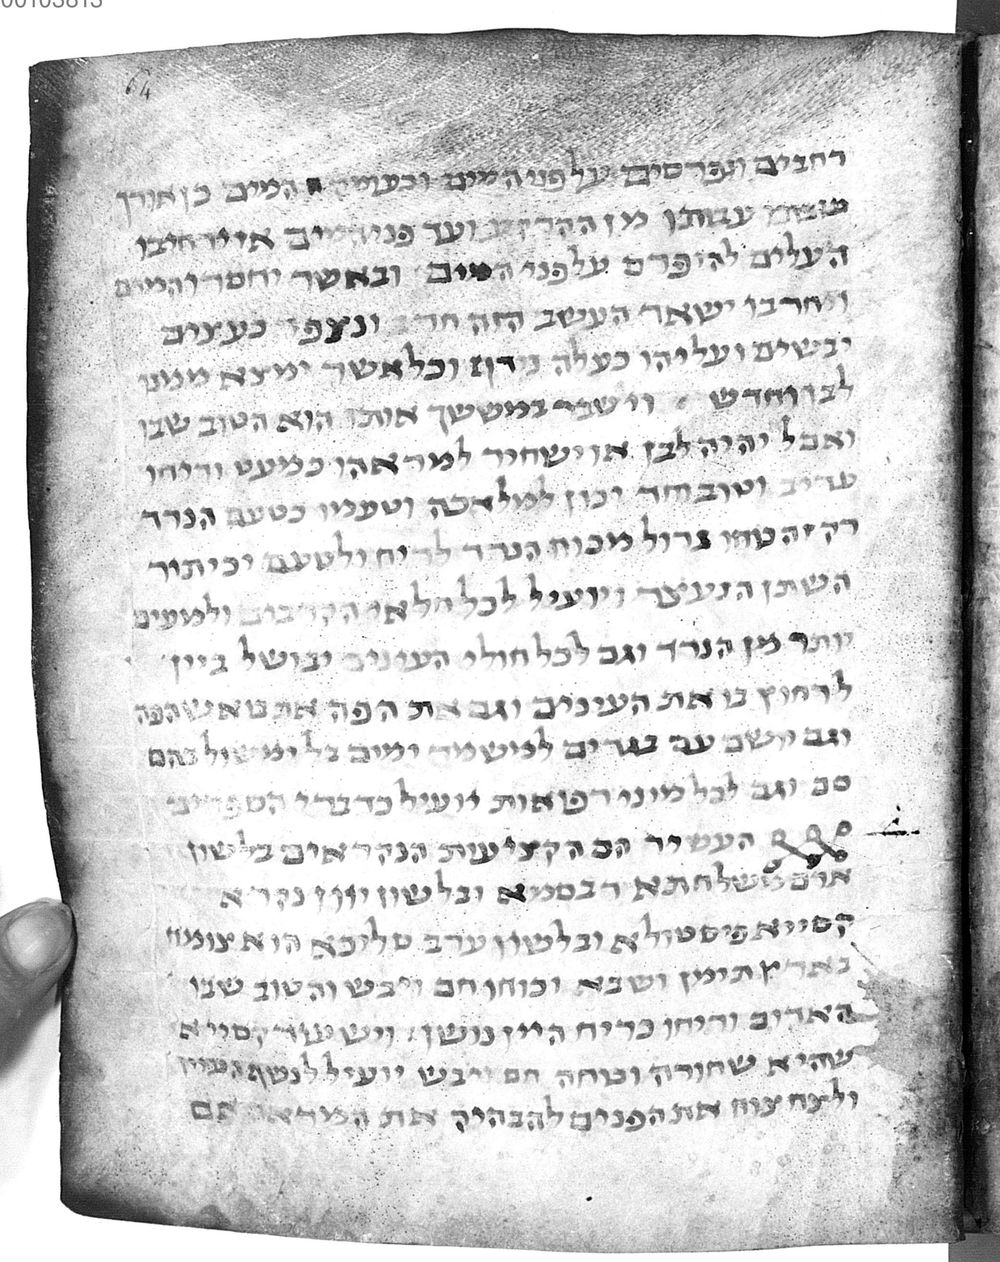 00103813
64
רחבים ונפרסים על פני המים וכעומק המים כן אורך
עמתו מן הקרקע ועד פני המים אז ירחיבו
העלים להיפרס על פני המים ובאשר יחסרו המים
ויחרבו ישאר העשב הזה חרב ונצפד כעצים
יבשים ועליהו כעלה וכל אשר ימצא ממנו
לבן וחדש וישבר במששך אותו הוא הטוב שבו
ואכל יהיה לבן או ישחיר למראהו כמעט וריחו
עריב וטוב וחד יכון למלאכה וטעמו כטעם הנרד
רק זה כוחו גדול מכוח הנרד לריח ולטעם יכיתיר
השתן הנעצר ויועיל לכל חלאי הקרבים ולמעים
יותר מן הנרד וגם לכל חולי העינים יבושל ביין
לרחוץ בו את העינים וגם את הפה
וגם יושם עם בגדים למשמר ימים בל ימשול בהם
סס וגם לכל מיני רפואות יועיל כדברי הספרים
העשיר הם הקציעות הנקראים בלשון
ארם משלחתא דבסמא ובלשון יון נקרא
קסייא פיסטולא ובלשון ערב סליכא הוא צומח
בארץ תימן ושבא וכוחו חם ויבש והטוב שבו
האדום וריחו כריח היין נושן ויש עוד קסייא
שהיא שחורה וכוחה חם ויבש יועיל
ולצחצוח את הפנים להבהיק את המראה אם